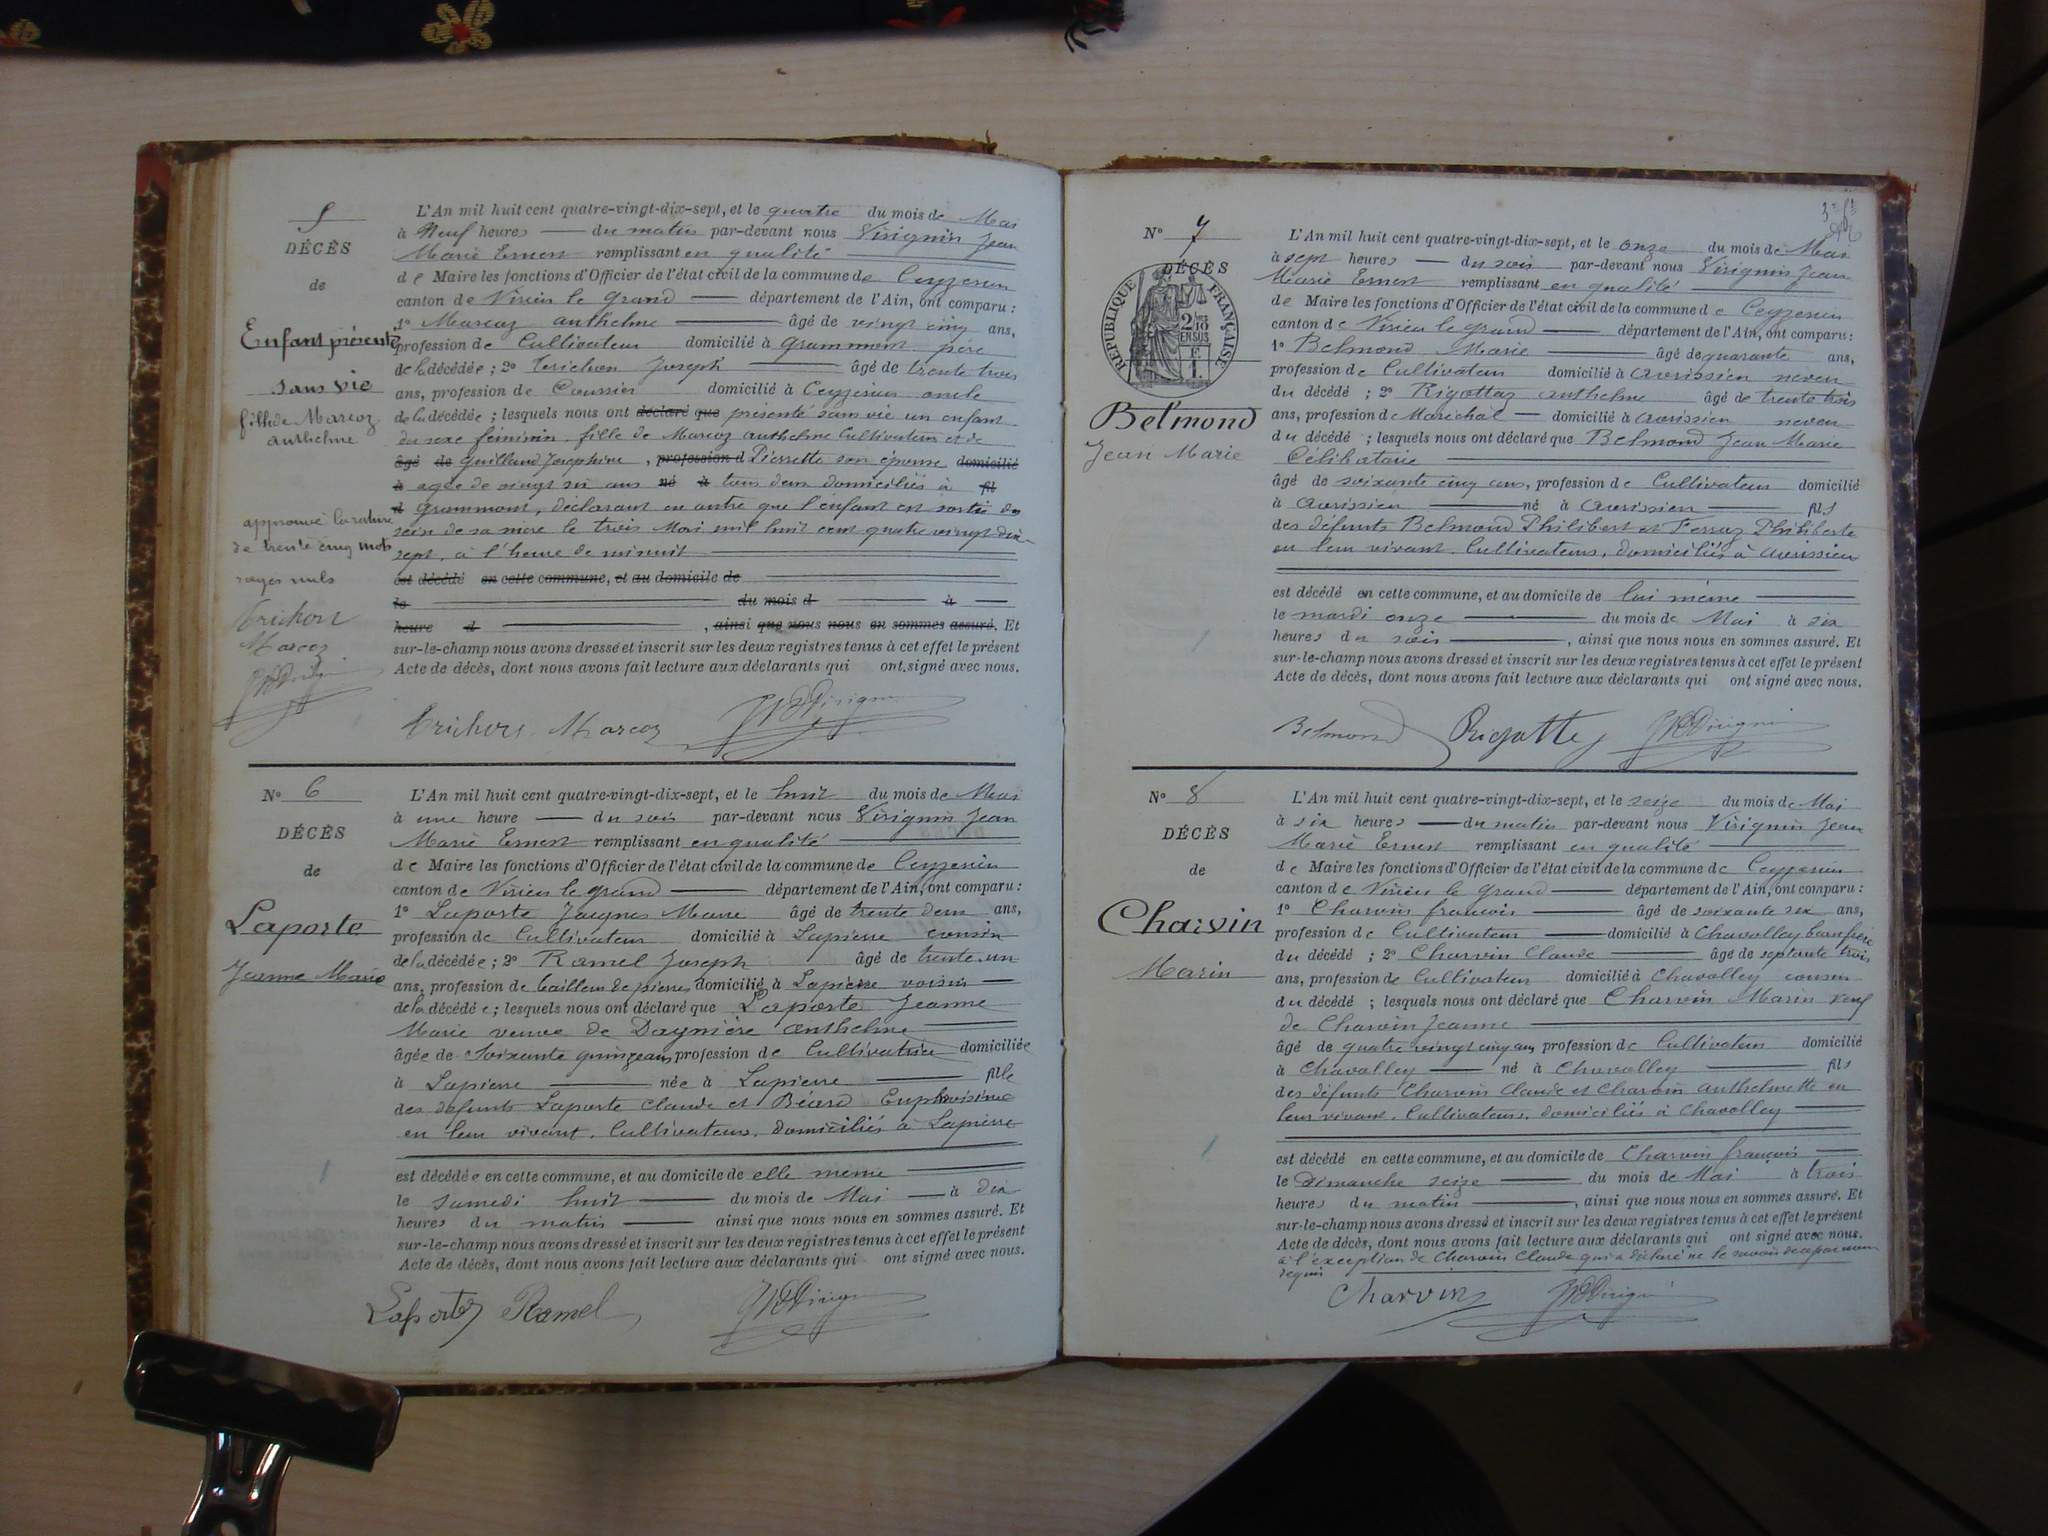 5
DÉCÈS
de
Enfant présenté
sans vie
fille de Marcoz
anthelme
approuvé la rature
de trente cinq mots
rayés nuls
Trichon
Marcoz
L'An mil huit cent quatre-vingt-dix-sept, et le quatre du mois de Mai
à Neuf heures du matin par-devant nous Virignin Jean
Marie Ernest remplissant en qualité
de Maire les fonctions d'Officier de l'état civil de la commune de Ceyzerieu
canton de Virieu le grand département de l'Ain, ont comparu :
1º Marcoz anthelme âgé de vingt cinq ans,
profession de Cultivateur domicilié à Grammont père
de la décédée ; 2º Trichon Joseph âgé de trente trois
ans, profession de Coursier domicilié à Ceyzerieu oncle
de la décédée ; lesquels nous ont déclaré que présenté sans vie un enfant
du sexe féminin, fille de Marcoz anthelme Cultivateur et de
âgé de Guilland Josephine, profession d Pierrette son épouse domicilié
à agée de vingt six ans né à tous deux domiciliés à fil
d Grammont, déclarant en outre que l'enfant est sortie du
sein de sa mère le trois Mai mil huit cent quatre vingt dix-
sept, à l'heure de minuit
est décédé en cette commune, et au domicile de
le du mois d à
heure d , ainsi que nous nous en sommes assuré. Et
sur-le-champ nous avons dressé et inscrit sur les deux registres tenus à cet effet le présent
Acte de décès, dont nous avons fait lecture aux déclarants qui ont signé avec nous.
Trichon Marcoz JMEVirignin
Nº 6
DÉCÈS
de
Laporte
Jeanne Marie
L'An mil huit cent quatre-vingt-dix-sept, et le huit du mois de Mai
à une heure du soir par-devant nous Virignin Jean
Marie Ernest remplissant en qualité
de Maire les fonctions d'Officier de l'état civil de la commune de Ceyzerieu
canton de Virieu le grand département de l'Ain, ont comparu :
1º Laporte Jacques Marie âgé de trente deux ans,
profession de Cultivateur domicilié à Lapierre cousin
de la décédée ; 2º Ramel Joseph âgé de trente-un
ans, profession de tailleur de pierres domicilié à Lapierre voisin
de la décédée ; lesquels nous ont déclaré que Laporte Jeanne
Marie veuve de Dagnière anthelme
âgée de Soixante quinze ans profession de Cultivatrice domiciliée
à Lapierre née à Lapierre fille
des défunts Laporte Claude et Béard Euphroisine
en leur vivant, Cultivateurs, domiciliés à Lapierre
est décédée en cette commune, et au domicile de elle même
le samedi huit du mois de Mai à dix
heures du matin ainsi que nous nous en sommes assuré. Et
sur-le-champ nous avons dressé et inscrit sur les deux registres tenus à cet effet le présent
Acte de décès, dont nous avons fait lecture aux déclarants qui ont signé avec nous.
Laporte Ramel JMEVirignin
Nº 7
DÉCÈS
RÉPUBLIQUE FRANÇAISE
2/10 EN SUS
Belmond
Jean Marie
L'An mil huit cent quatre-vingt-dix-sept, et le onze du mois de Mai
à sept heures du soir par-devant nous Virignin Jean
Marie Ernest remplissant en qualité
de Maire les fonctions d'Officier de l'état civil de la commune de Ceyzerieu
canton de Virieu le grand département de l'Ain, ont comparu :
1º Belmond Marie âgé de quarante ans,
profession de Cultivateur domicilié à Avrissieu neveu
du décédé ; 2º Rigottaz anthelme âgé de trente trois
ans, profession de Maréchal domicilié à Avrissieu neveu
du décédé ; lesquels nous ont déclaré que Belmond Jean Marie
Célibataire
âgé de soixante cinq ans, profession de Cultivateur domicilié
à Avrissieu né à Avrissieu fils
des défunts Belmond Philibert et Ferraz Philiberte
en leur vivant, Cultivateurs, domiciliés à Avrissieu
est décédé en cette commune, et au domicile de lui même
le mardi onze du mois de Mai à six
heures du soir , ainsi que nous nous en sommes assuré. Et
sur-le-champ nous avons dressé et inscrit sur les deux registres tenus à cet effet le présent
Acte de décès, dont nous avons fait lecture aux déclarants qui ont signé avec nous.
Belmond Rigotta JMEVirignin
Nº 8
DÉCÈS
de
Charvin
Marin
L'An mil huit cent quatre-vingt-dix-sept, et le seize du mois de Mai
à six heures du matin par-devant nous Virignin Jean
Marie Ernest remplissant en qualité
de Maire les fonctions d'Officier de l'état civil de la commune de Ceyzerieu
canton de Virieu le grand département de l'Ain, ont comparu :
1º Charvin françois âgé de soixante six ans,
profession de Cultivateur domicilié à Chavolley beau frère
du décédé ; 2º Charvin Claude âgé de septante trois
ans, profession de Cultivateur domicilié à Chavolley cousin
du décédé ; lesquels nous ont déclaré que Charvin Marin veuf
de Charvin Jeanne
âgé de quatre vingt cinq ans profession de Cultivateur domicilié
à Chavolley né à Chavolley fils
des défunts Charvin Claude et Charvin anthelmette en
leur vivant, Cultivateurs, domiciliés à Chavolley
est décédé en cette commune, et au domicile de Charvin françois
le Dimanche seize du mois de Mai à trois
heures du matin , ainsi que nous nous en sommes assuré. Et
sur-le-champ nous avons dressé et inscrit sur les deux registres tenus à cet effet le présent
Acte de décès, dont nous avons fait lecture aux déclarants qui ont signé avec nous.
à l'exception de Charvin Claude qui a déclaré ne le savoir de ce par nous
requis
Charvin JMEVirignin